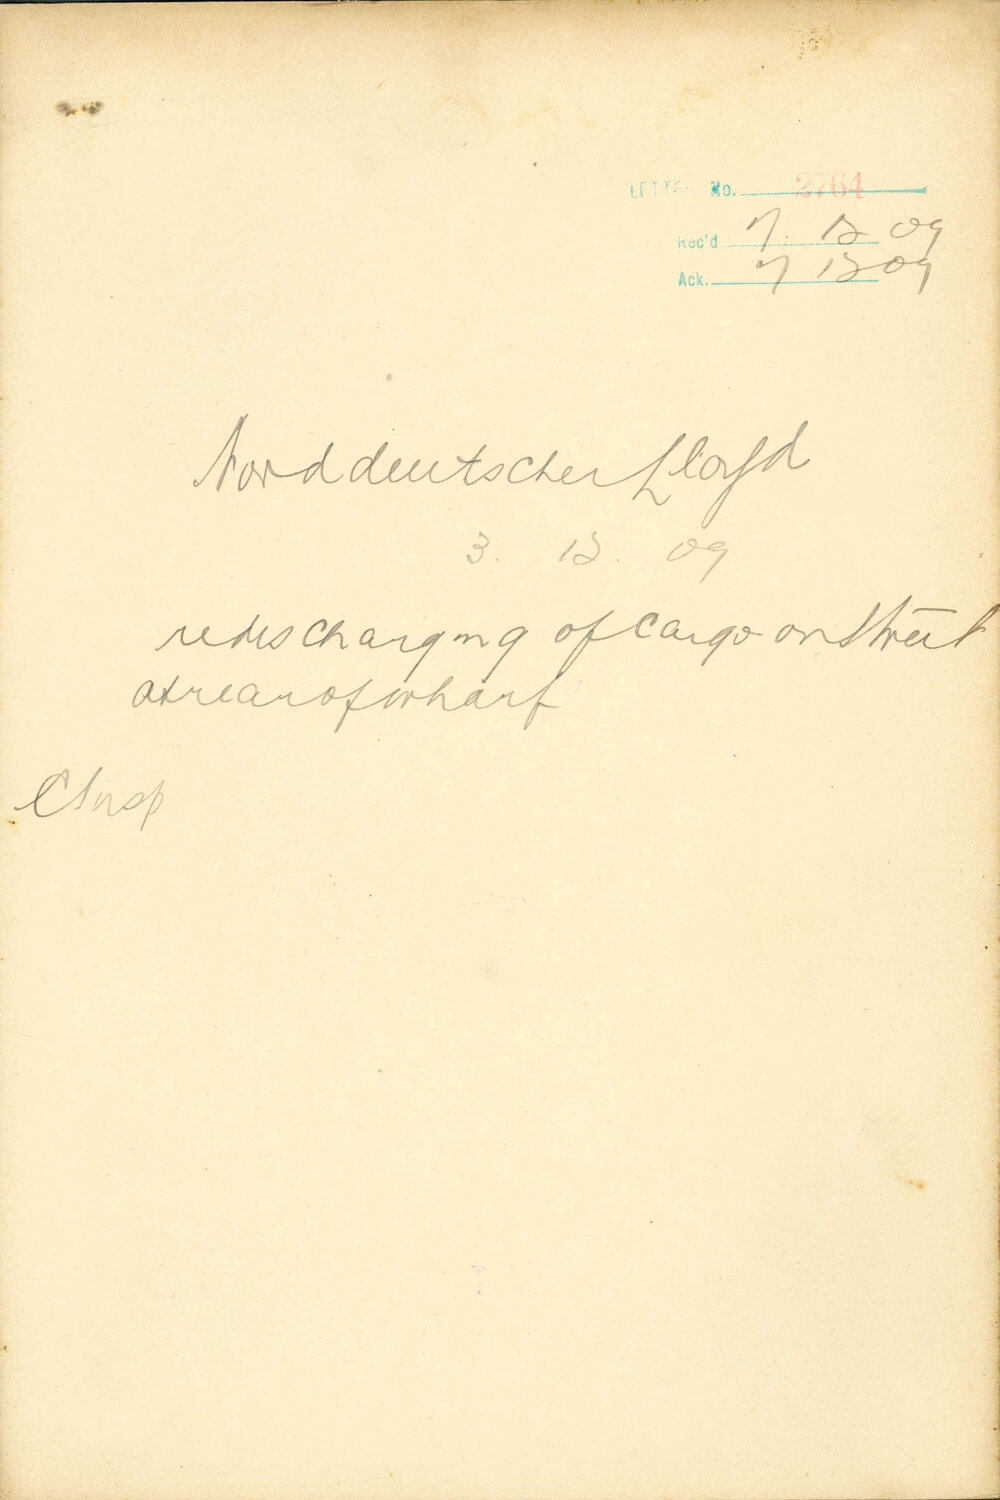 LETTER No. 2764
Rec'd 7. 12 09
Ack. 7 12 09
Norddeutscher Lloyd
3. 12. 09
re discharging of cargo on Street
at rear of wharf
C Insp